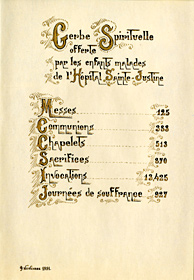 Gerbe Spirituelle
offerte
par les enfants malades
de l'Hôpital Sainte-Justine
Messes 125
Communions 383
Chapelets 513
Sacrifices 870
Invocations 13,425
Journées de souffrance 927